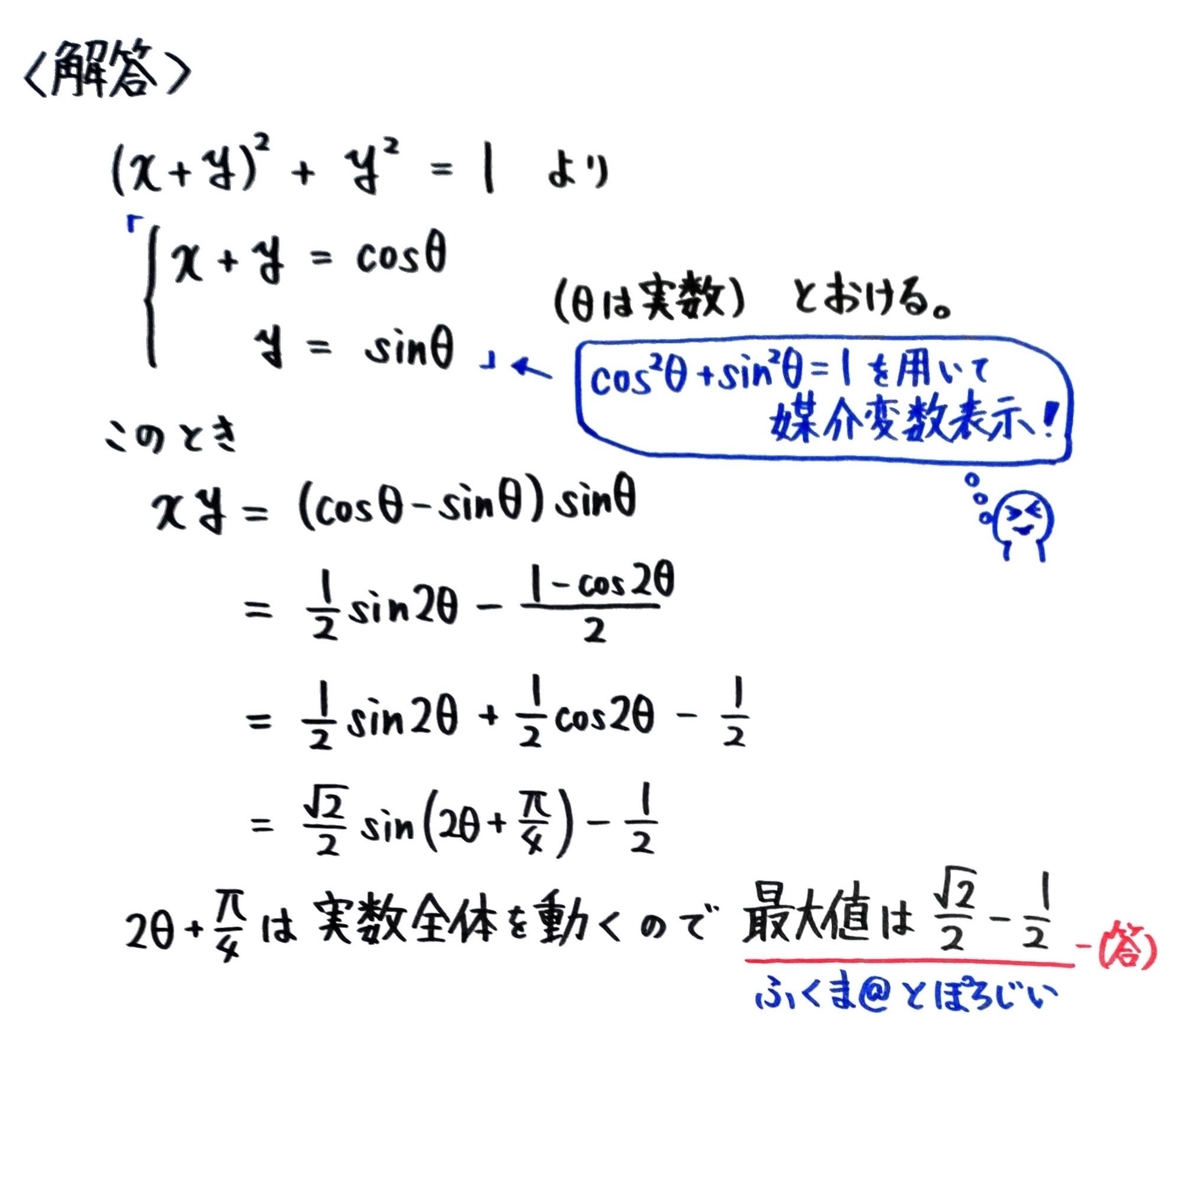 〈解答〉
(x+y)² + y² = 1 より
「{x + y = cosθ
y = sinθ」
(θは実数) とおける。
← cos²θ+sin²θ=1を用いて
媒介変数表示!
このとき
xy = (cosθ-sinθ)sinθ
= 1/2 sin2θ - (1-cos2θ)/2
= 1/2 sin2θ + 1/2 cos2θ - 1/2
= √2/2 sin(2θ+π/4) - 1/2
2θ+π/4は実数全体を動くので 最大値は √2/2 - 1/2 -(答)
ふくま@とぽろじい